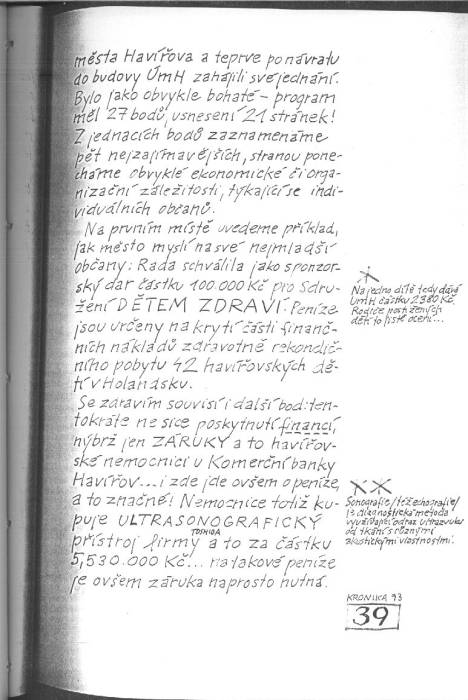 města Havířova a teprve po návratu
do budovy ÚmH zahájili své jednání.
Bylo jako obvykle bohaté - program
měl 27 bodů, usnesení 21 stránek!
Z jednacích bodů zaznamenáme
pět nejzajímavějších, stranou pone-
cháme obvyklé ekonomické či orga-
nizační záležitosti, týkající se indi-
viduálních občanů.
Na prvním místě uvedeme příklad,
jak město myslí na své nejmladší
občany: Rada schválila jako sponzor-
ský dar částku 100.000 Kč pro Sdru-
žení DĚTEM ZDRAVÍ. Peníze
jsou určeny na krytí části finanč-
ních nákladů zdravotně rekondič-
ního pobytu 42 havířovských dě-
tí v Holandsku.
Se zdravím souvisí i další bod: ten-
tokráte ne sice poskytnutí financí,
nýbrž jen ZÁRUKY a to havířov-
ské nemocnici u Komerční banky
Havířov... i zde jde ovšem o peníze,
a to značné! Nemocnice totiž ku-
puje ULTRASONOGRAFICKÝ
přístroj firmy TOSHIBA a to za částku
5,530.000 Kč... na takové peníze
je ovšem záruka naprosto nutná.
X
Na jedno dítě tedy dává
ÚmH částku 2380 Kč.
Rodiče postižených
dětí to jistě ocení...
XX
Sonografie/též echografie/
je diagnostická metoda
využívající odraz ultrazvuku
od tkání s různými
akustickými vlastnostmi.
KRONIKA 93
39